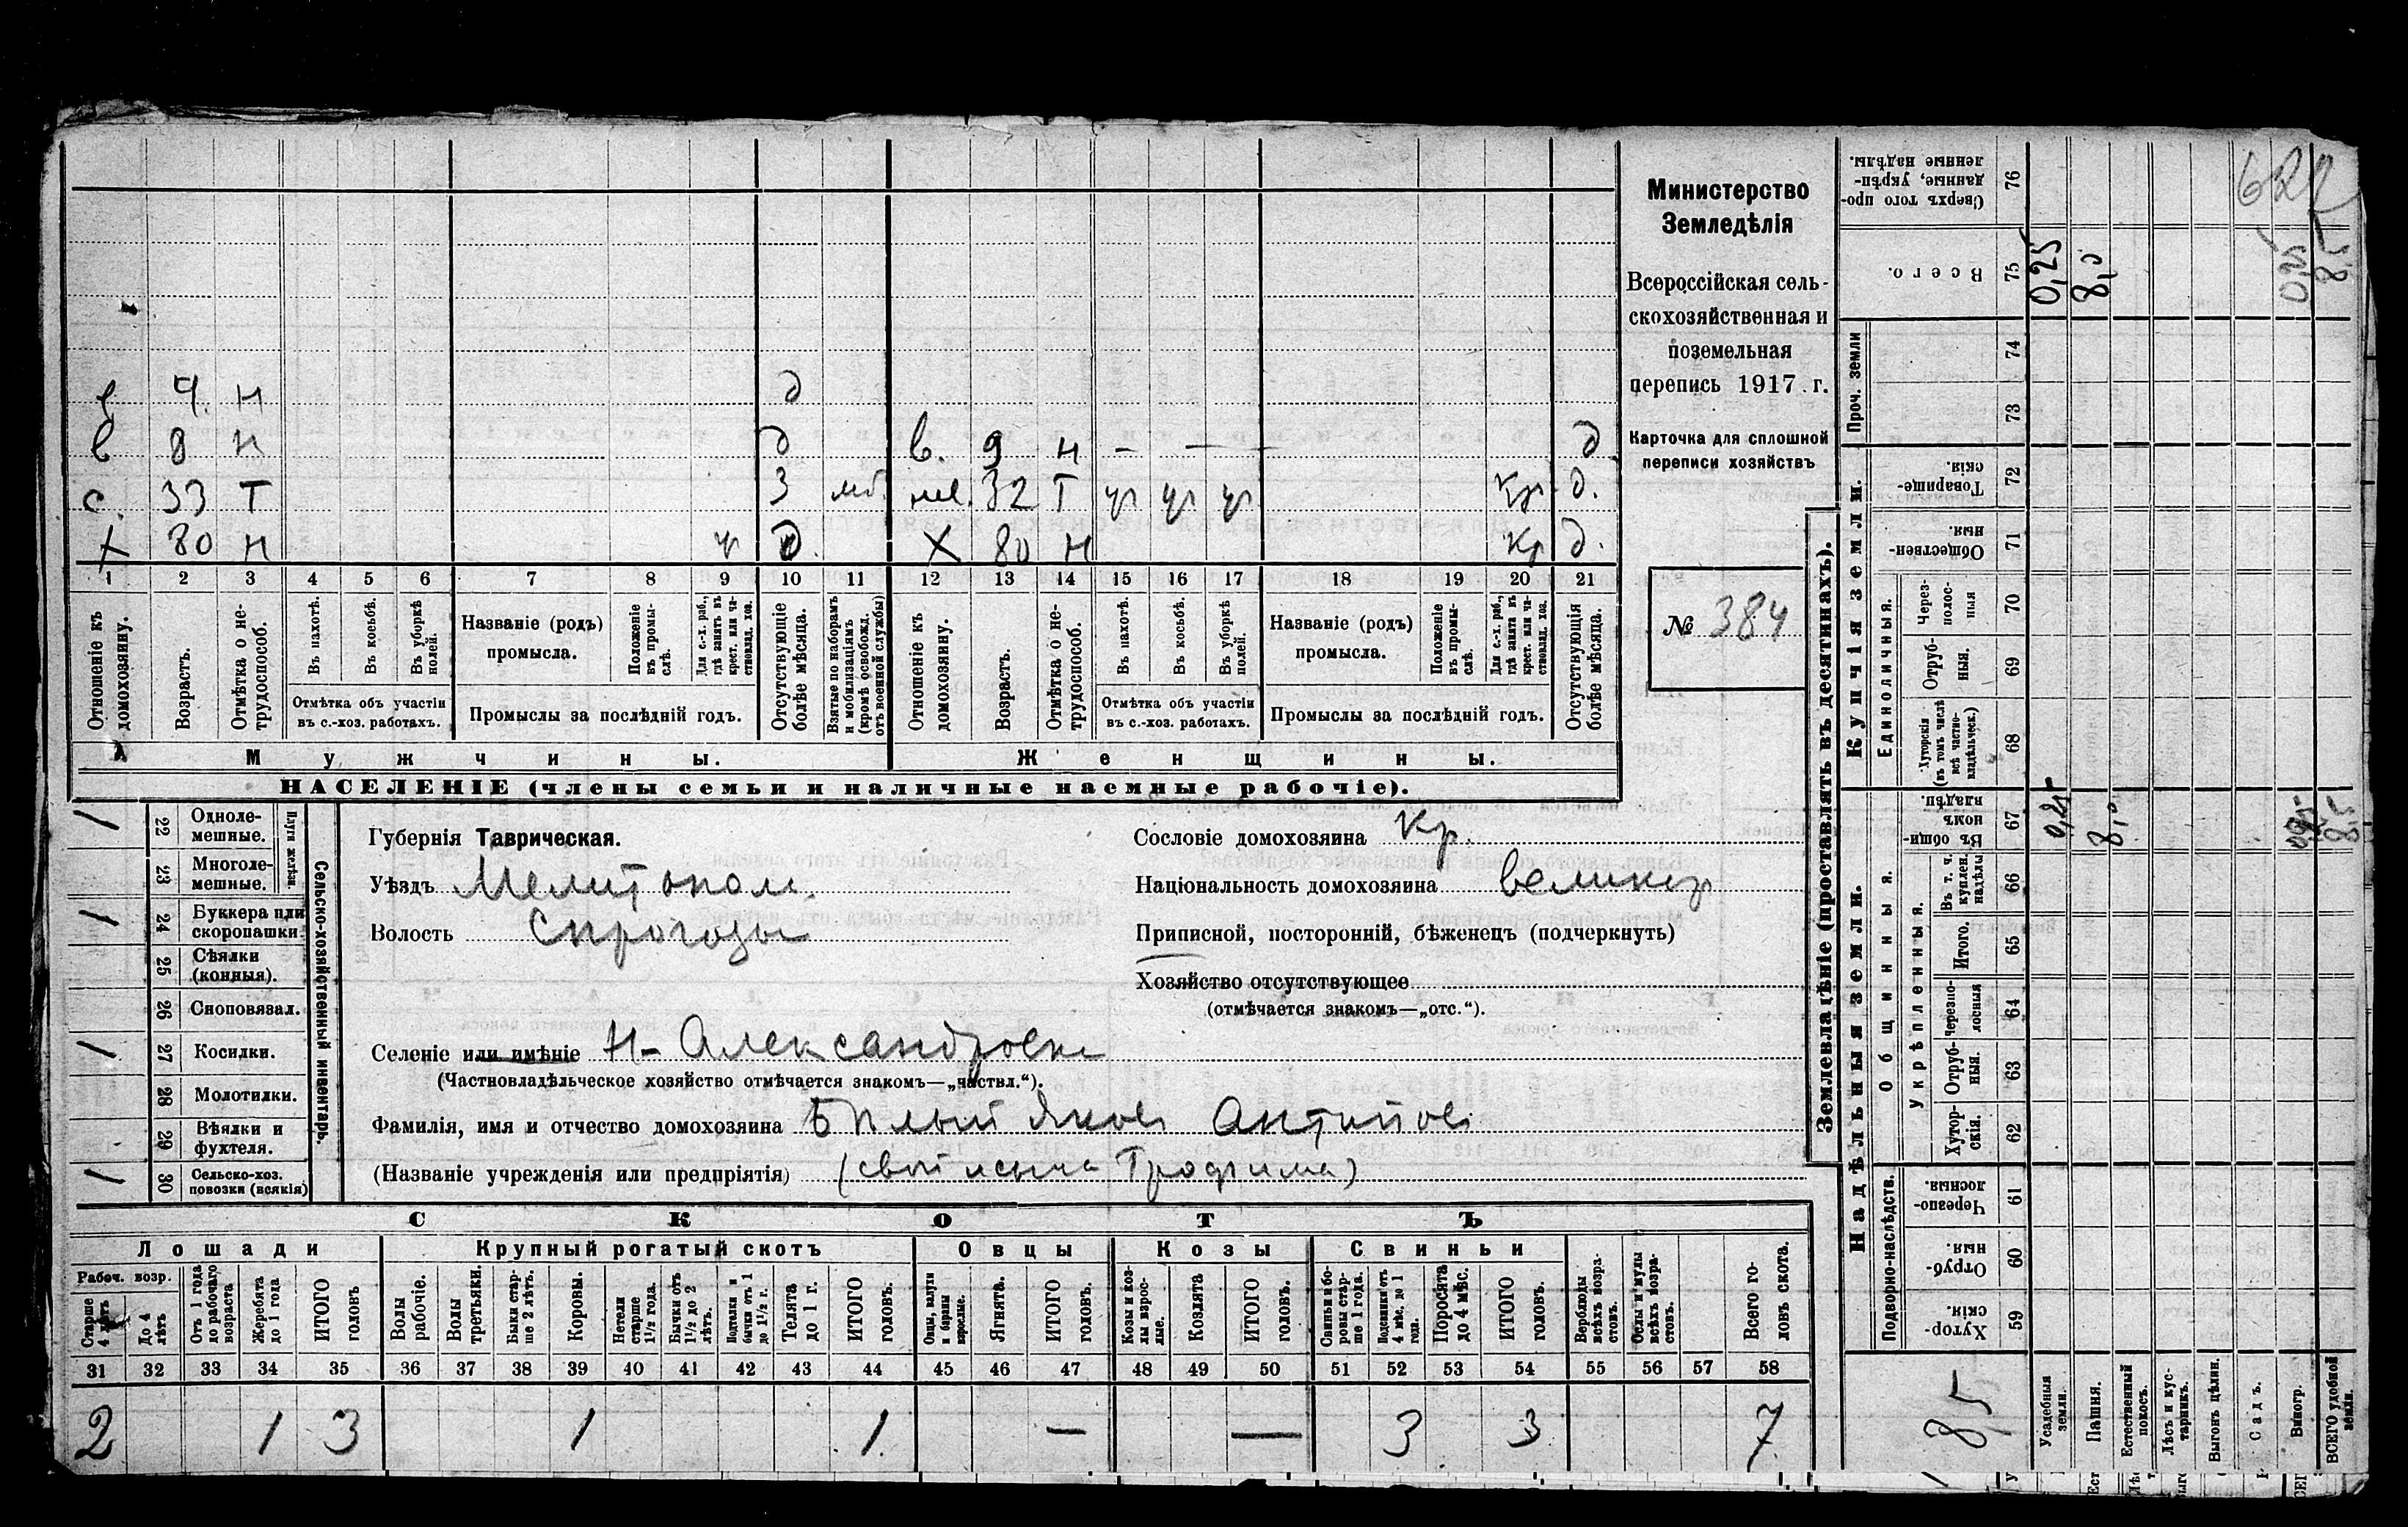 Министерство
Земледѣлія
Всероссійская сель-
скохозяйственная и
поземельная
перепись 1917 г.
Карточка для сплошной
переписи хозяйствъ
№ 384
627
н д
в 8 н д в. 9 н — — д
с. 33 Т 3 мб. 32 Т кр д.
Х 80 н д. Х 80 н кр д.
1 2 3 4 5 6 7 8 9 10 11 12 13 14 15 16 17 18 19 20 21
Отношеніе къ домохозяину.
Возрастъ.
Отмѣтка о не-трудоспособ.
Въ пахотѣ.
Въ косьбѣ.
Въ уборкѣ полей.
Отмѣтка объ участіи
въ с.-хоз. работахъ.
Названіе (родъ)
промысла.
Положеніе въ промы-слѣ.
Для с.-х. раб., гдѣ занятъ въ крест. или ча-ствовлад. хоз.
Промыслы за послѣдній годъ.
Отсутствующіе болѣе мѣсяца.
Взятые по наборамъ и мобилизаціямъ (кромѣ освобожд. отъ военной службы)
Отношеніе къ домохозяину.
Возрастъ.
Отмѣтка о не-трудоспособ.
Въ пахотѣ.
Въ косьбѣ.
Въ уборкѣ полей.
Отмѣтка объ участіи
въ с.-хоз. работахъ.
Названіе (родъ)
промысла.
Положеніе въ промы-слѣ.
Для с.-х. раб., гдѣ занята въ крест. или ча-ствовлад. хоз.
Промыслы за послѣдній годъ.
Отсутствующія болѣе мѣсяца.
Мужчины. Женщины.
НАСЕЛЕНІЕ (члены семьи и наличные наемные рабочіе).
Сельско-хозяйственный инвентарь.
Плуги желѣзн.
/ 22 Одноле-мешные.
23 Многоле-мешные.
/ 24 Буккера или скоропашки
25 Сѣялки (конныя).
26 Сноповязал.
/ 27 Косилки.
28 Молотилки.
29 Вѣялки и фухтеля.
/ 30 Сельско-хоз. повозки (всякія)
Губернія Таврическая.
Уѣздъ Мелитопол.
Волость
Сословіе домохозяина кр.
Національность домохозяина великор
Приписной, посторонній, бѣженецъ (подчеркнуть)
Хозяйство отсутствующее
(отмѣчается знакомъ—„отс.“).
Селеніе или имѣніе Н-Александровка
(Частновладѣльческое хозяйство отмѣчается знакомъ—„частвл.“).
Фамилія, имя и отчество домохозяина Бѣлый Яков Антипов
(Названіе учрежденія или предпріятія) Трофима)
СКОТЪ
Лошади Крупный рогатый скотъ Овцы Козы Свиньи
Рабоч. возр.
Старше 4 лѣтъ
До 4 лѣтъ
Отъ 1 года до рабочаго возраста
Жеребята до 1 года
ИТОГО головъ
Волы рабочіе.
Волы третьяки.
Быки стар-ше 2 лѣтъ.
Коровы.
Нетели старше 1½ года.
Бычки отъ 1½ до 2 лѣтъ.
Подтелки и бычки отъ 1 до 1½ г.
Телята до 1 г.
ИТОГО головъ.
Овцы, валухи и бараны взрослые.
Ягнята.
ИТОГО головъ.
Козы и коз-лы взрос-лые.
Козлята
ИТОГО головъ.
Свиньи и бо-ровы стар-ше 1 года.
Подсвинки отъ 4 мѣс. до 1 года.
Поросята до 4 мѣс.
ИТОГО головъ.
Верблюды всѣхъ возра-стовъ.
Ослы и мулы всѣхъ возра-стовъ.
Всего го-ловъ скота.
31 32 33 34 35 36 37 38 39 40 41 42 43 44 45 46 47 48 49 50 51 52 53 54 55 56 57 58
2 1 3 1 1 — — 3 3 7
Землевладѣніе (проставлять въ десятинахъ).
Сверхъ того про-данные, укрѣп-ленные надѣлы. 76
Всего. 75 0,25 8,0
Проч. земли
74
73
Купчія земли.
Товарище-скія. 72
Обществен-ныя. 71
Единоличныя.
Через-полос-ныя 70
Отруб-ныя. 69
Хуторскія (въ томъ числѣ всѣ частно-владѣльческ.) 68
Надѣльныя земли.
Общинныя.
Въ общи-номъ владѣн. 67 0,25 8,0
Укрѣпленныя.
Въ т. ч. куплен. надѣлы 66
Итого. 65
Черезпо-лосныя 64
Отруб-ныя. 63
Хутор-скія. 62
Подворно-наслѣдств.
Черезпо-лосныя 61
Отруб-ныя. 60
Хутор-скія. 59
Усадебныя земли.
Пашня.
Естественный покосъ.
Лѣсъ и кус-тарникъ.
Выгонъ цѣлин.
Садъ.
Виногр.
ВСЕГО удобной земли.